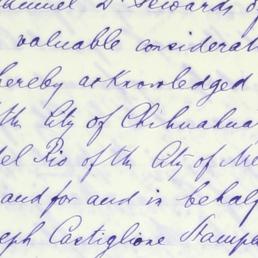 D. Sewards of
valuable considerat
hereby acknowledged
the City of Chihuahua
del Rio of the City of Me
and for and in behalf
eph Castiglione Stampa